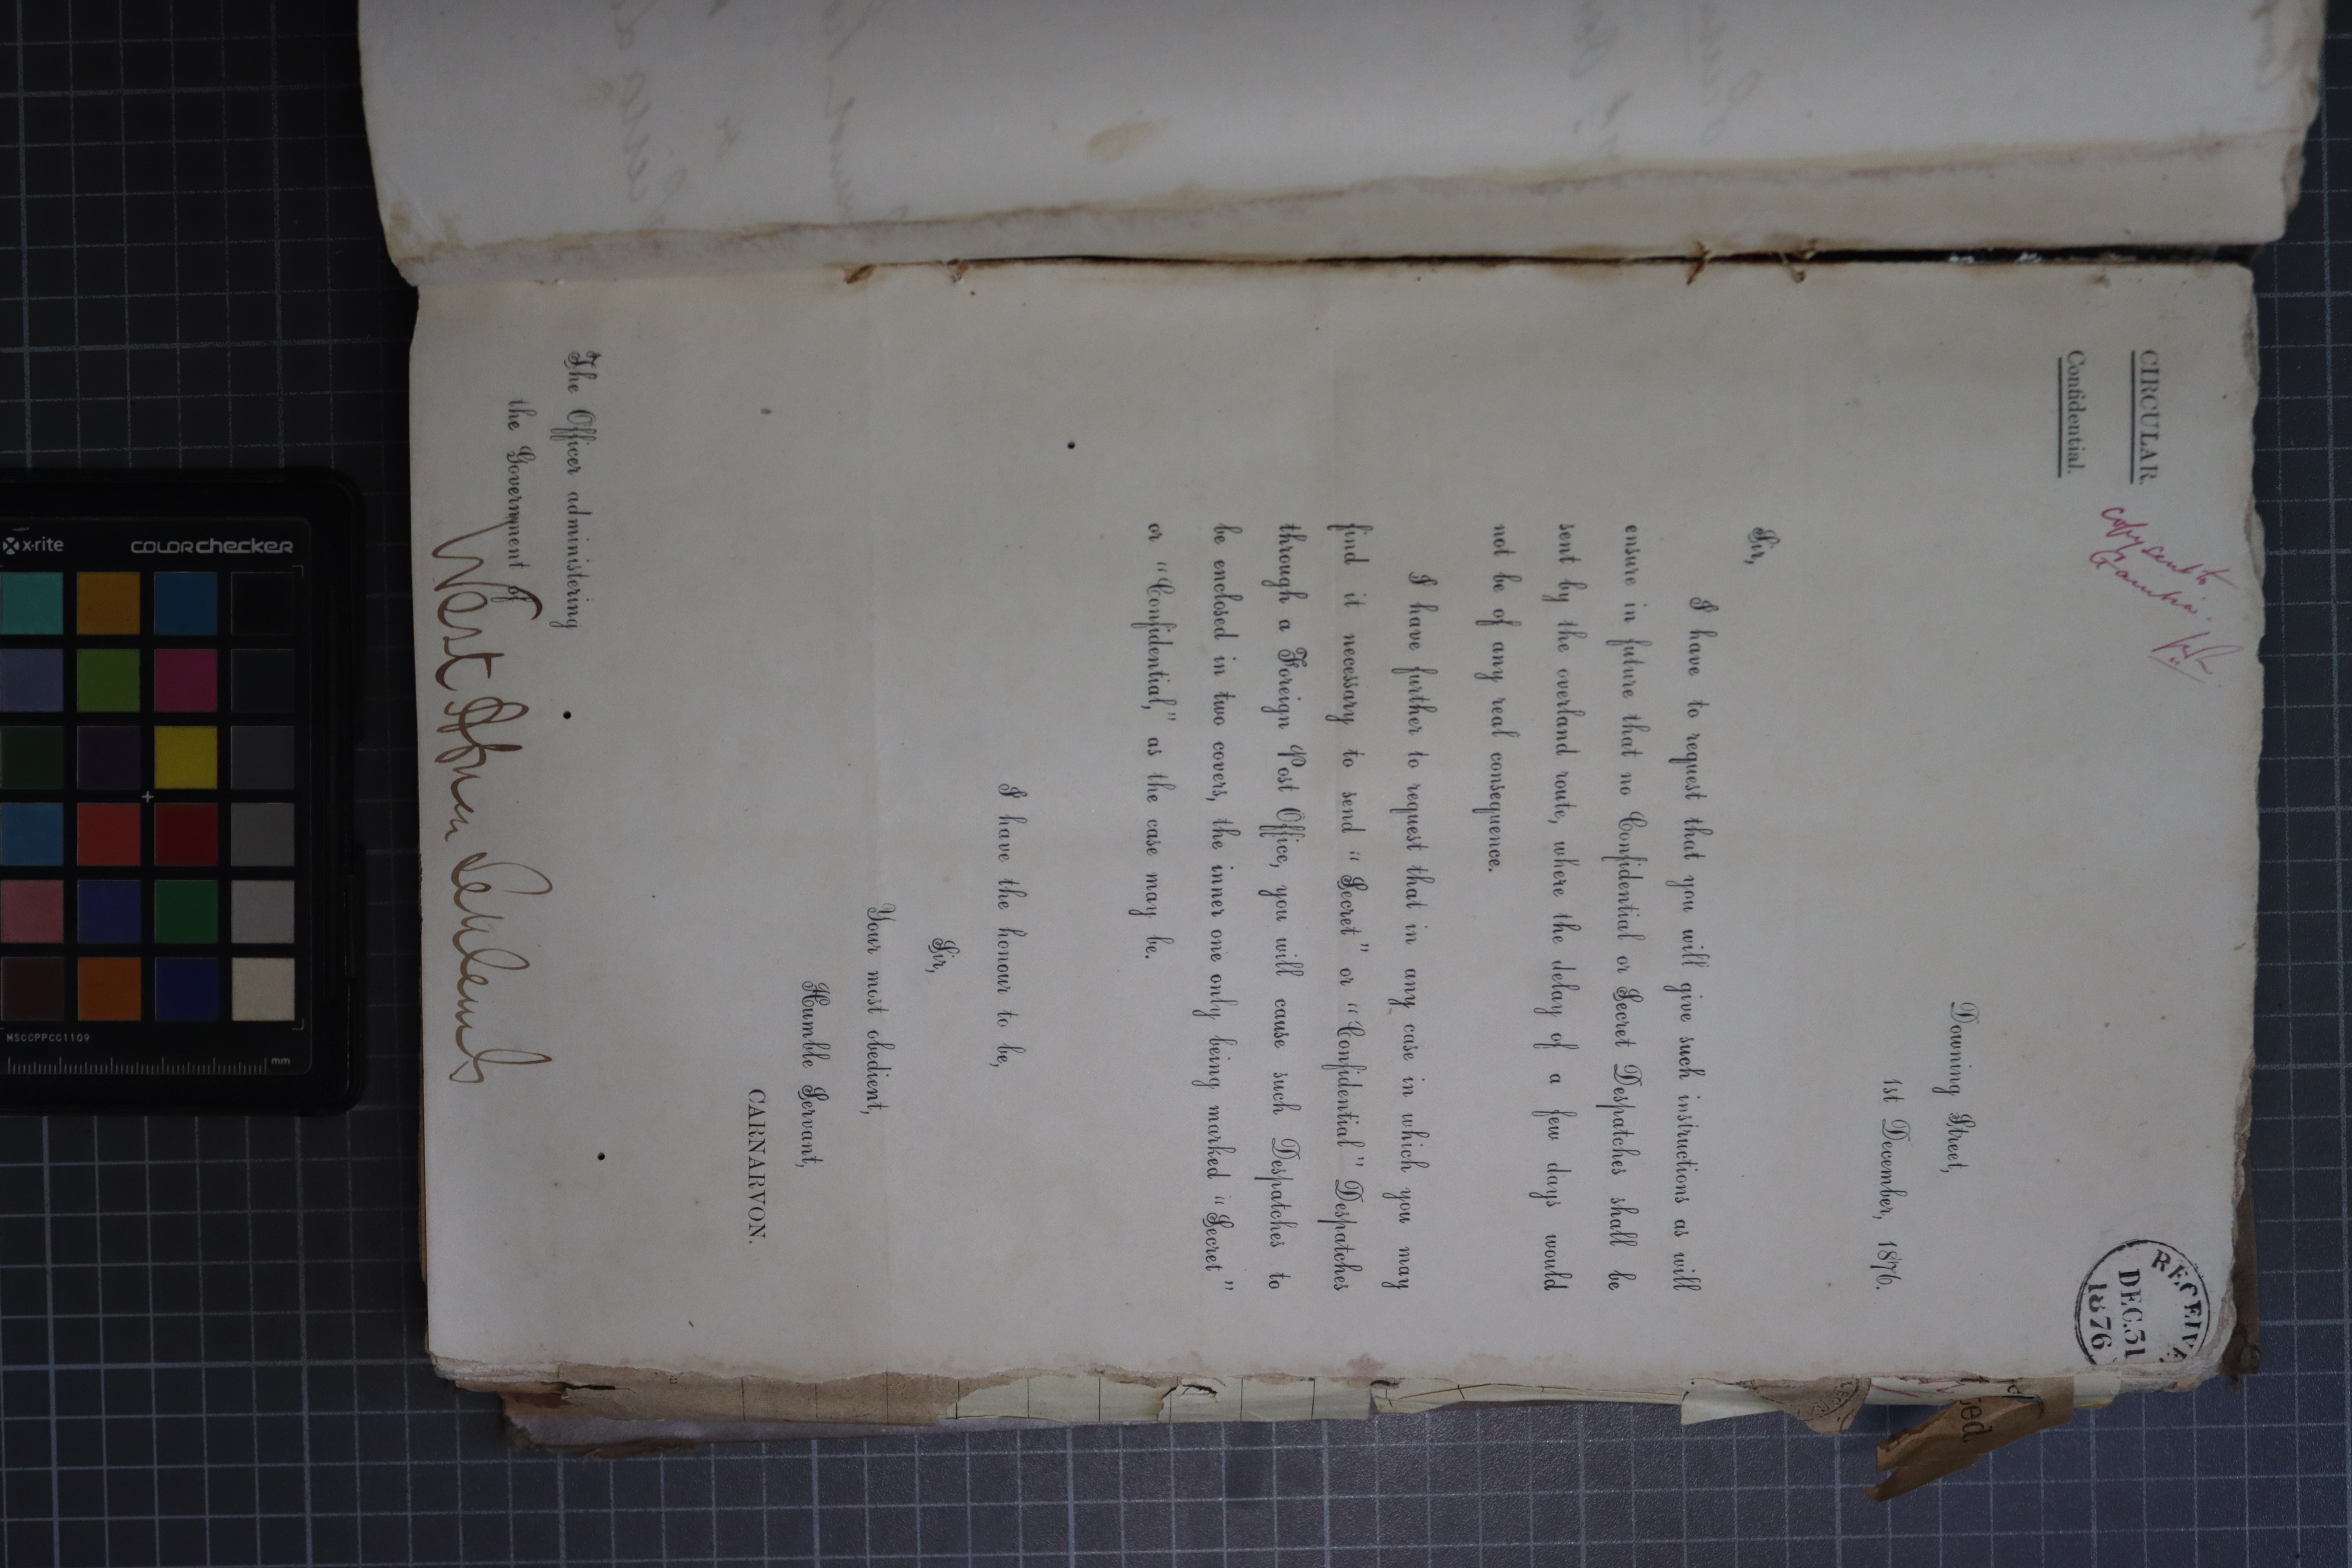 CIRCULAR.
Confidential.
copy sent to
Gambia.
RECEIVE
DEC.31
1876
Downing Street,
1st December, 1876.
Sir,
I have to request that you will give such instructions as will
ensure in future that no Confidential or Secret Despatches shall be
sent by the overland route, where the delay of a few days would
not be of any real consequence.
I have further to request that in any case in which you may
find it necessary to send “Secret” or “Confidential” Despatches
through a Foreign Post Office, you will cause such Despatches to
be enclosed in two covers, the inner one only being marked “Secret”
or “Confidential,” as the case may be.
I have the honour to be,
Sir,
Your most obedient,
Humble Servant,
CARNARVON.
The Officer administering
the Government of
West African Settlements
x-rite
colorchecker
MSCCPPCC1109
mm